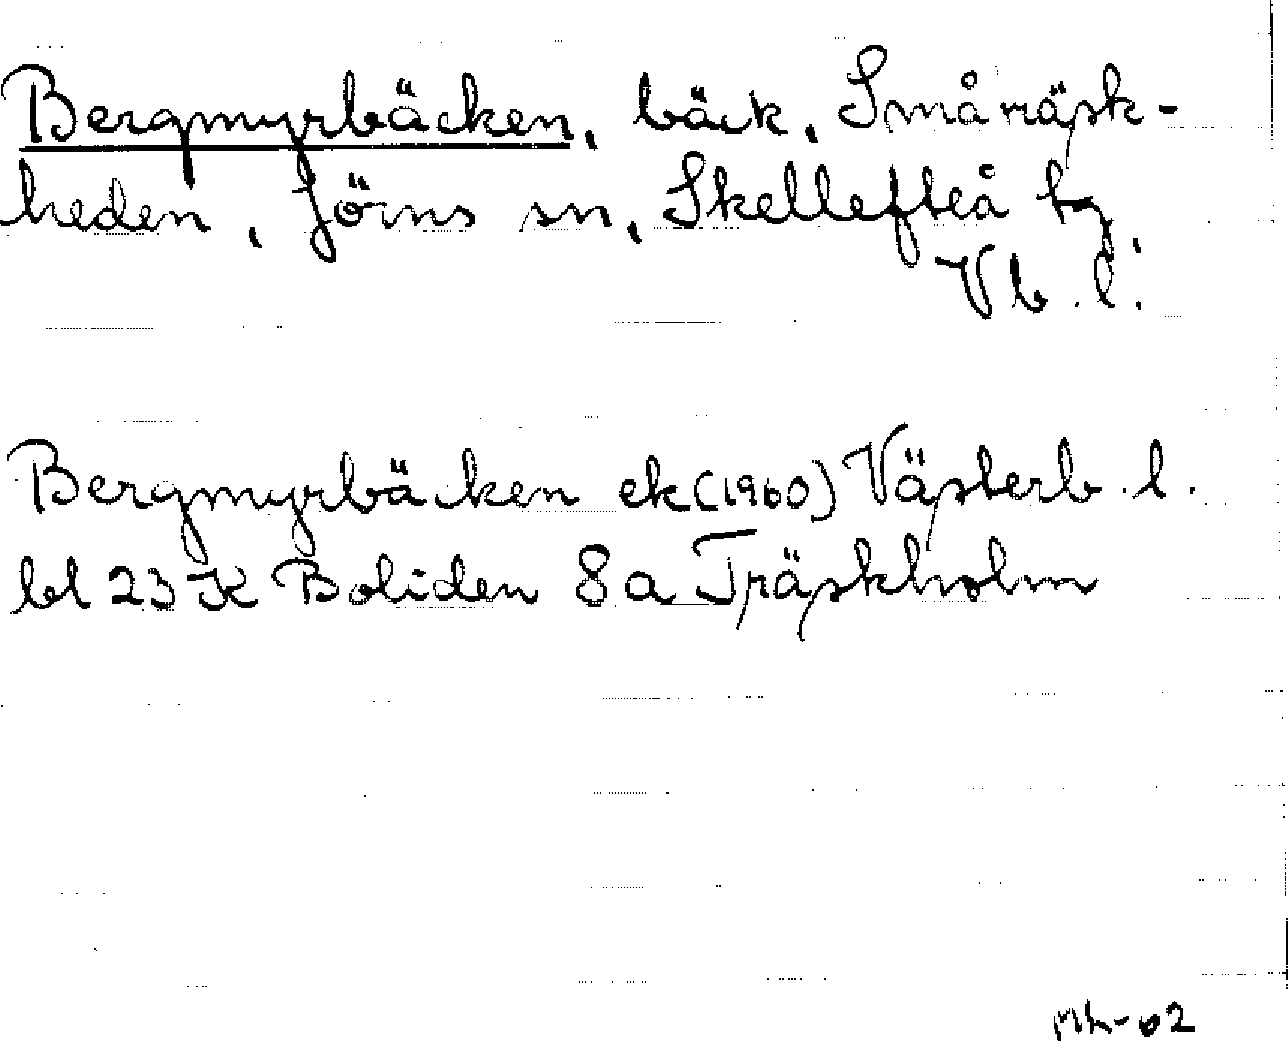 Bergmyrbäcken, bäck, Småräsk-
heden, Jörns sn, Skellefteå tg,
Vb. l.
Bergmyrbäcken ek (1960) Västerb. l.
bl 23 K Boliden 8 a Träskholm